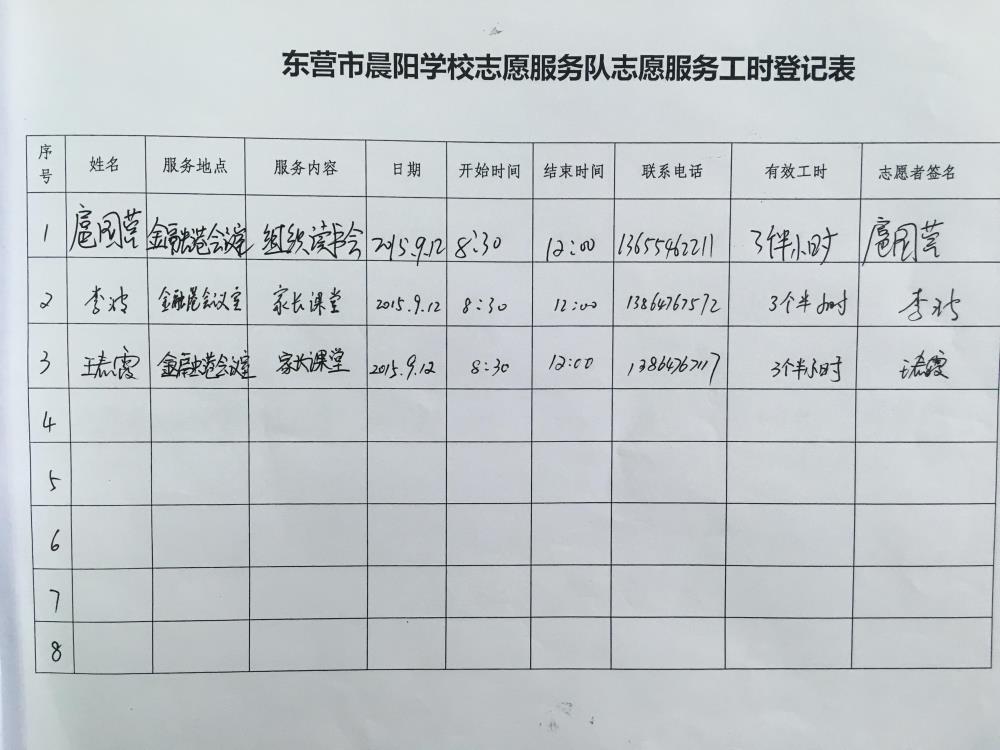 东营市晨阳学校志愿服务队志愿服务工时登记表
序号 姓名 服务地点 服务内容 日期 开始时间 结束时间 联系电话 有效工时 志愿者签名
1 扈国营 金融港会议室 组织读书会 2015.9.12 8:30 12:00 13655462211 3个半小时 扈国营
2 李玲 金融港会议室 家长课堂 2015.9.12 8:30 12:00 13864767572 3个半小时 李玲
3 王志霞 金融港会议室 家长课堂 2015.9.12 8:30 12:00 13864767117 3个半小时 王志霞
4
5
6
7
8